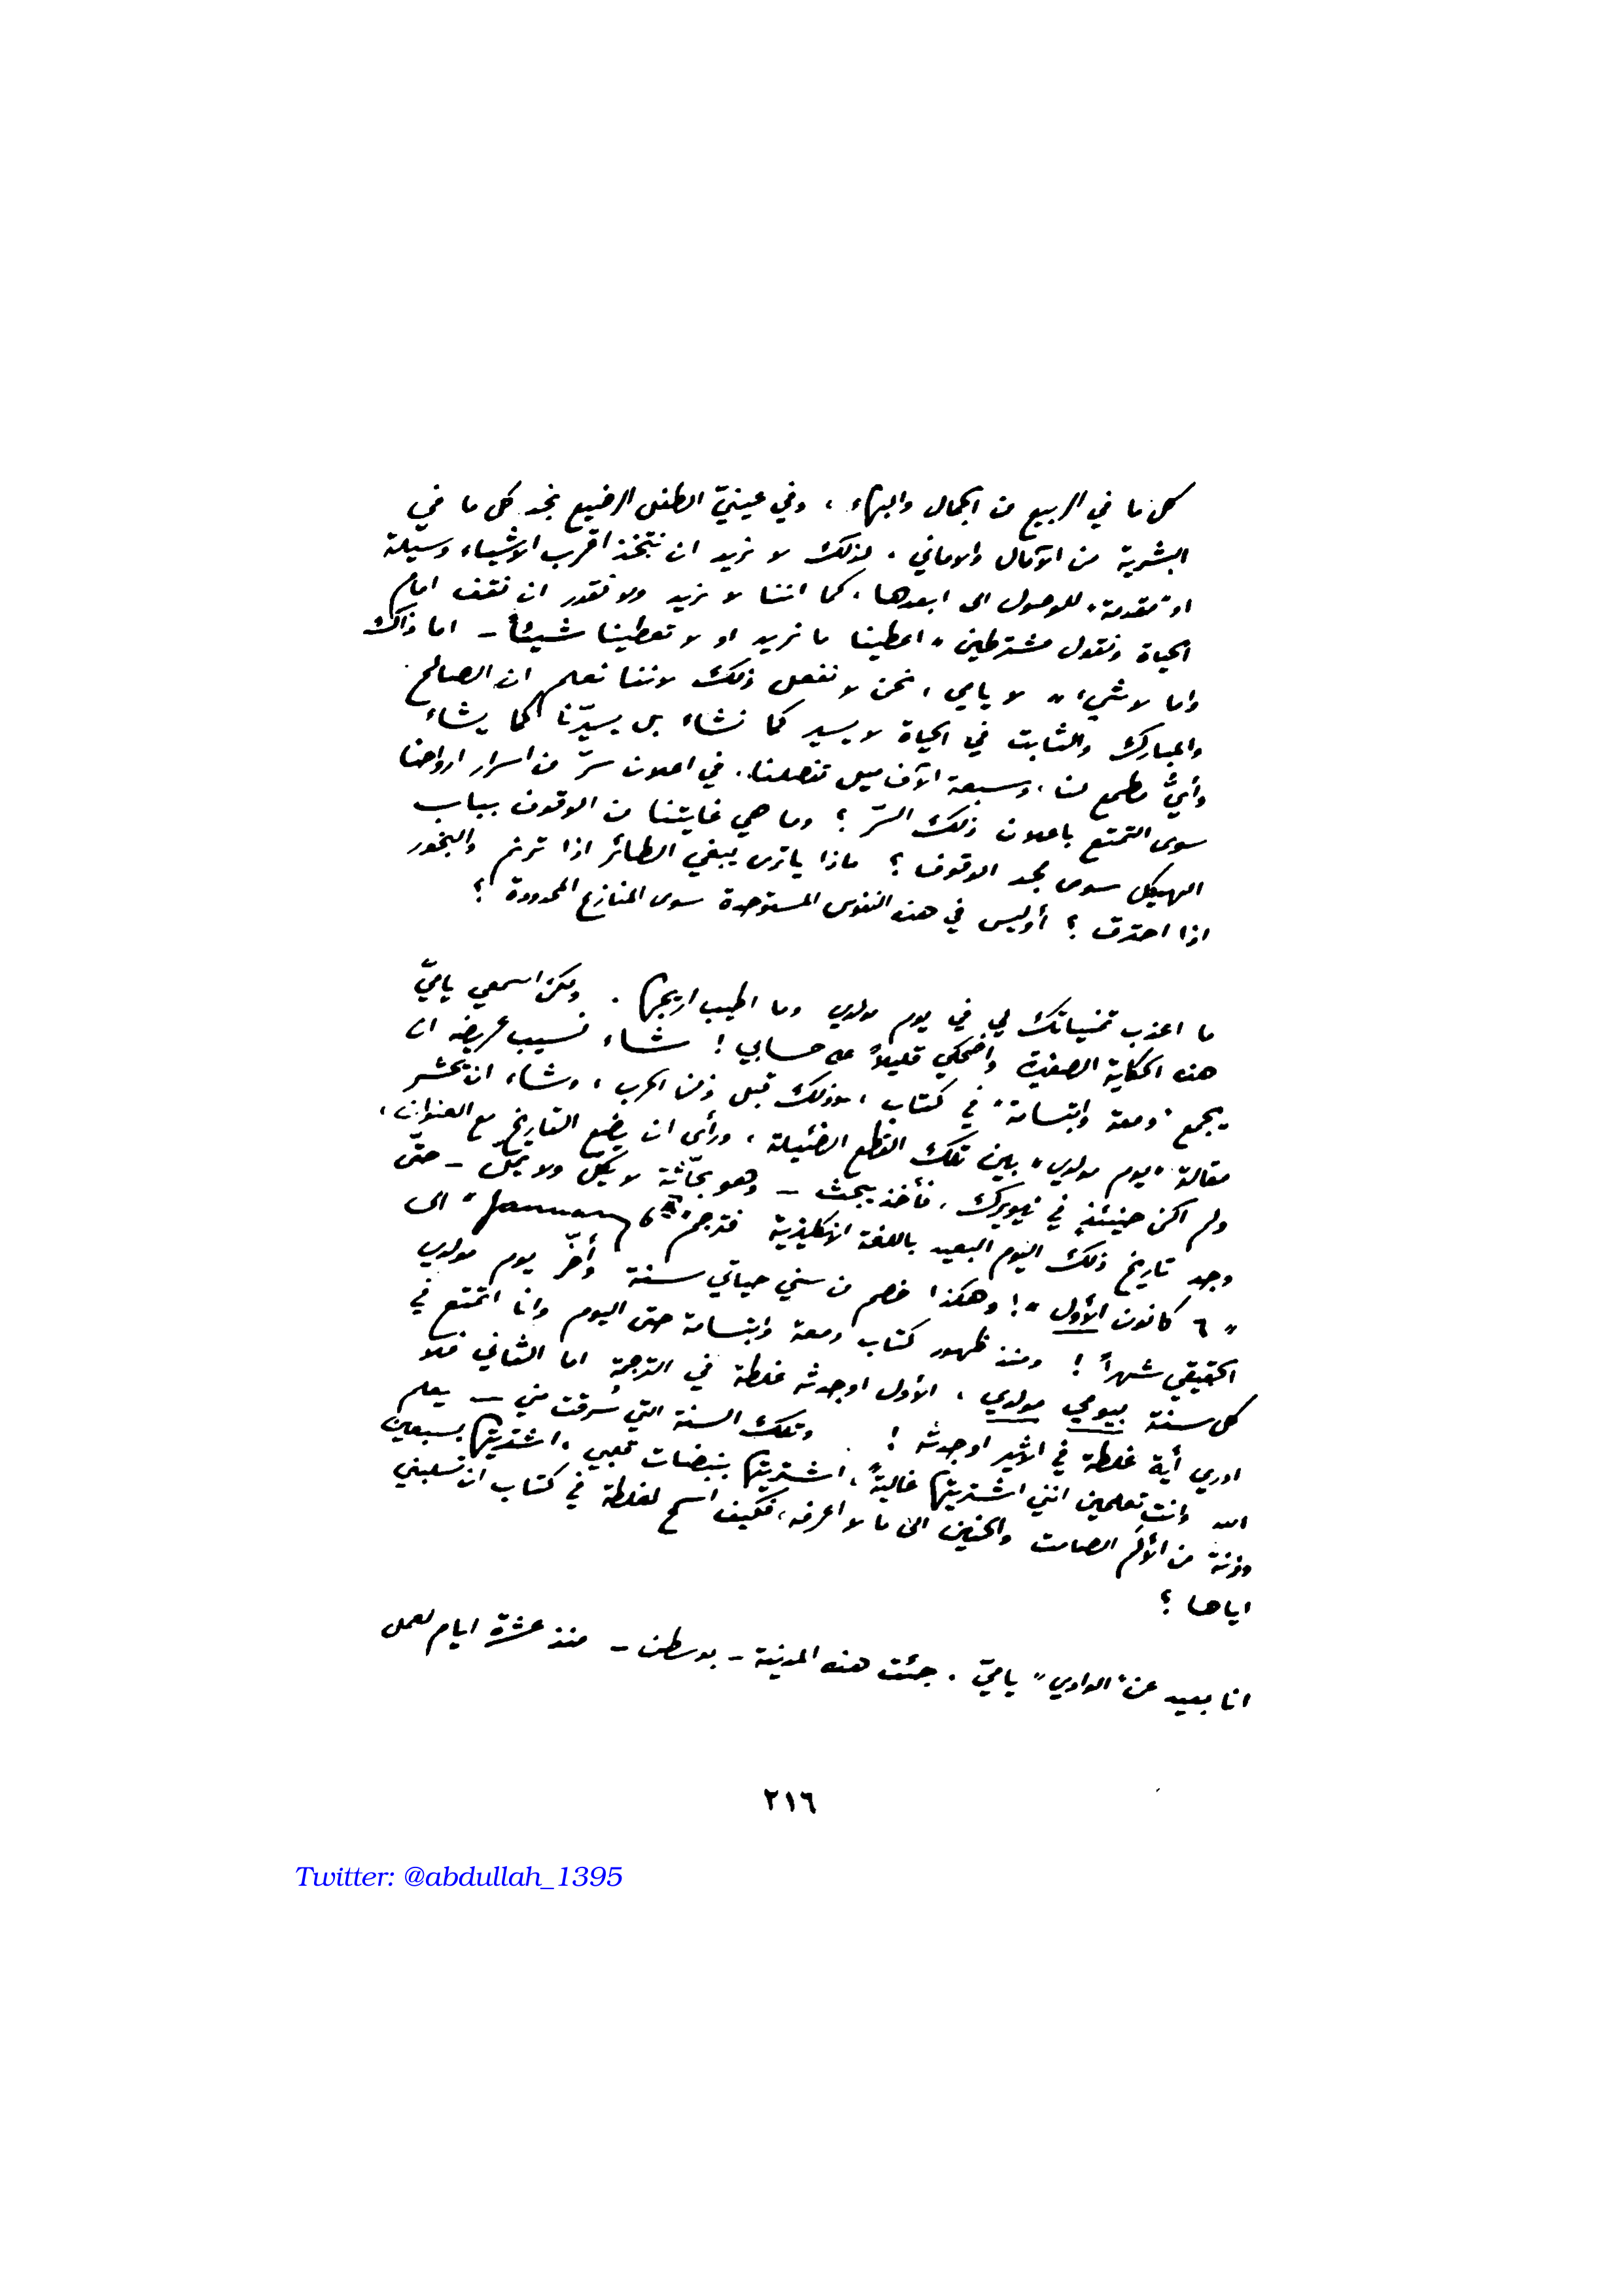 كل ما في الربيع من الجمال والبهاء ، وفي عينيّ الطفل الرضيع نجد كل ما في
البشرية من الآمال والاماني . لذلك لا نريد ان نتخذ اقرب الاشياء وسيلة
او "مقدمة" للوصول الى ابعدها . كما اننا لا نريد ولا نقدر ان نقف امام
الحياة ونقول مشترطين " اعطينا ما نريد او لا تعطينا شيئاً - اما ذاك
واما لا شيء " لا يامي ، نحن لا نفعل ذلك لاننا نعلم ان الصالح
والمبارك والثابت في الحياة لا يسير كما نشاء بل يسيّرنا كما يشاء
وأيُّ مطمع لنا ، وسبعة الآف ميل تفصلنا ، في اعلان سرّ من اسرار ارواحنا
سوى التمتع باعلان ذلك السرّ ؟ وما هي غايتنا من الوقوف بباب
الهيكل سوى مجد الوقوف ؟ ماذا يا ترى يبغي الطائر اذا ترنم والبخور
اذا احترق ؟ أوليس في هذه النفوس المستوحدة سوى المنازع المحدودة ؟
ما اعذب تمنياتك لي في يوم مولدي وما اطيب اريجها . ولكن اسمعي ياميّ
هذه الحكاية الصغيرة واضحكي قليلاً على حسابي ! شاء نسيب عريضه ان
يجمع "دمعة وابتسامة" في كتاب ، وذلك قبل زمن الحرب ، وشاء ان يحشر
مقالة "يوم مولدي" بين تلك القطع الضئيلة ، ورأى ان يضع التاريخ مع العنوان ،
ولم اكن حينئذٍ في نيويرك ، فأخذ يبحث - وهو بحّاثة لا يكلّ ولا يملّ - حتّى
وجد تاريخ ذلك اليوم البعيد باللغة الانكليزية فترجم "January 6th" الى
" ٦ كانون الأول " ! وهكذا خصم من سني حياتي سنة وأخّر يوم مولدي
الحقيقي شهراً ! ومنذ ظهور كتاب دمعة وابتسامة حتى اليوم وانا اتمتع في
كل سنة بيومي مولدي ، الأول اوجدته غلطة في الترجمة اما الثاني فلا
ادري أية غلطة في الاثير اوجدته ! وتلك السنة التي سُرقت مني - يعلم
الله وانتِ تعلمين انني اشتريتها غاليةً ، اشتريتها بنبضات قلبي ، اشتريتها بسبعين
وزنة من الألم الصامت والحنين الى ما لا اعرفه ، فكيف اسمح لغلطة في كتاب ان تسلبني
اياها ؟
انا بعيد عن "الوادي" ياميّ . جئت هذه المدينة - بوسطن - منذ عشرة ايام لعمل
٢١٦
Twitter: @abdullah_1395